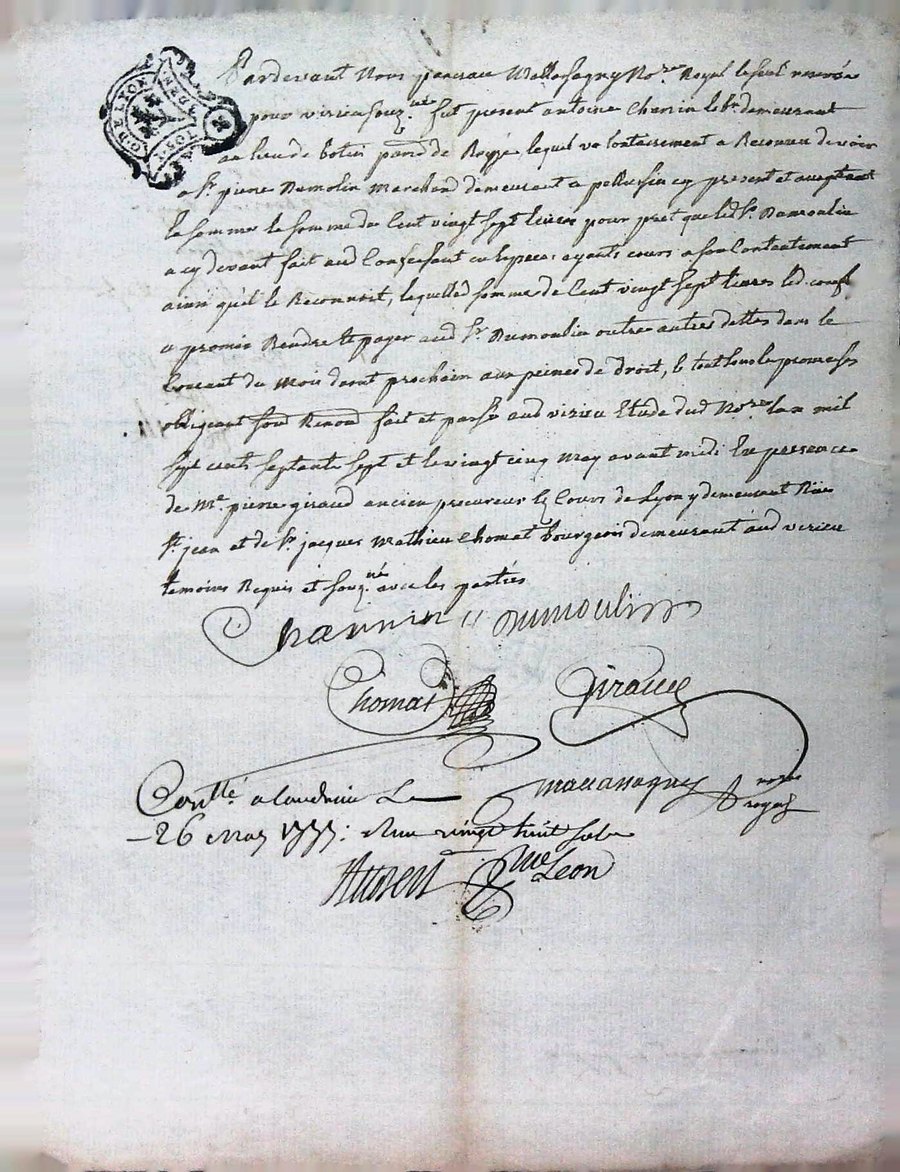 G. DE LYON
Pardevant Nous Royal
pour virieu souz.né fut present antoine Chenin demeurant
au lieu de parr.de de lequel volontairement a Reconnu devoir
a Sr. pierre Dumolin Marchand demeurant a pellussin cy present et acceptant
la somme la somme de Cent vingt sept livres pour pret que led Sr. Dumoulin
a cy devant fait aud Confessant en Especes ayants cours a son Contentement
ainsi qu'il le Reconnoit, lequelle somme de Cent vingt sept livres led conft
a promis Rendre et payer aud Sr. Dumoulin outre autres dettes dans le
Courant du Mois daout prochain aux peines de droit, le tout sous les promesses
obligeant fait et passé aud virieu Etude dud Nore. lan mil
sept cents septante sept et le vingt cinq May avant midi En presence
de Me. pierre giraud ancien procureur Es Cours de Lyon y demeurant Rüe
St. jean et de Sr. jacques Mathieu Chomat bourgeois demeurant aud verieu
temoins Requis et souz.nés avec les parties
Chænnin Dumoulin
Chomat Giraud
Contllé a Le Nore
26 may 1777: Reçu vingt huit sols royal
Leon